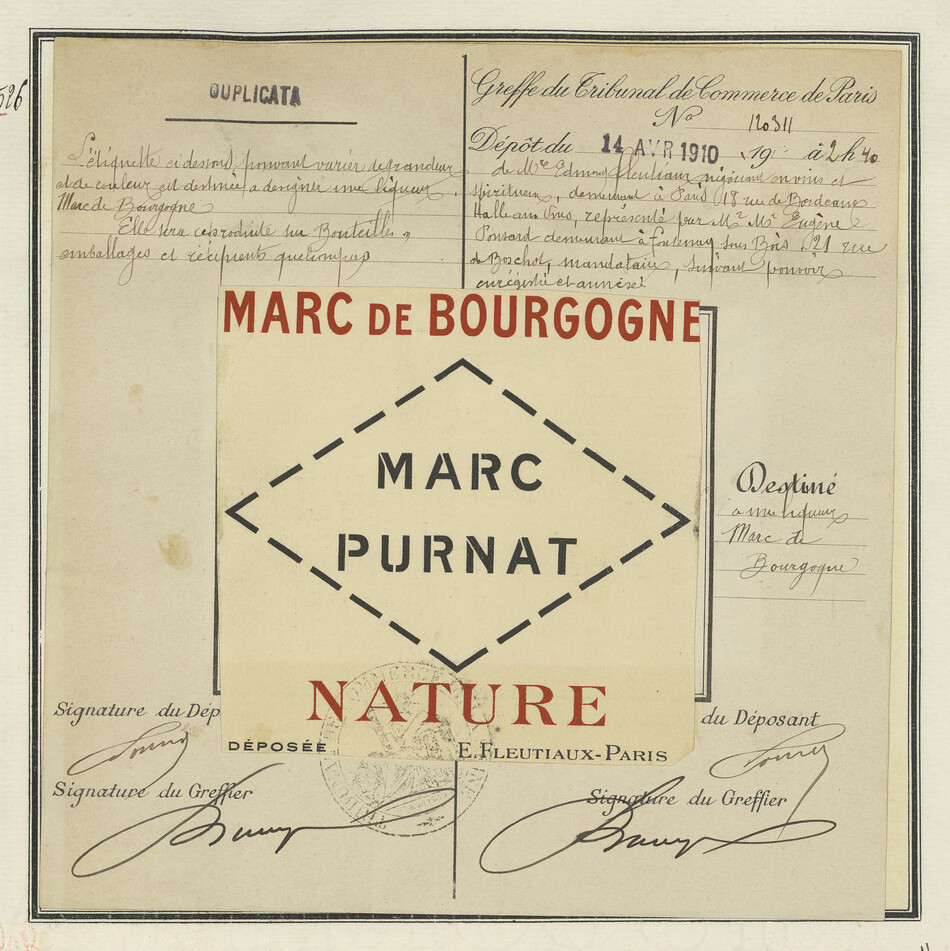 526
DUPLICATA
L'étiquette ci dessous pouvant varier de grandeur
et de couleur est destinée a designer une liqueur
Marc de Bourgogne
Elle sera reproduite sur Bouteilles,
emballages et récipients quelconques
Greffe du Tribunal de Commerce de Paris
No 120311
Dépôt du 14 AVR 1910 19 à 2h 40
de Mr Edmond Fleutiaux négociant en vins et
spiritueux, demeurant à Paris 18 rue de Bordeaux
Halle aux Vins, représenté par Mr Eugène
Ponsard demeurant à Fontenay sous Bois 21 rue
de mandataire, suivant pouvoir
enregistré et annexé
MARC DE BOURGOGNE
MARC
PURNAT
NATURE
DÉPOSÉE
E. FLEUTIAUX-PARIS
Destiné
a une liqueur
Marc de
Bourgogne
Signature du Dép
du Déposant
Signature du Greffier
Signature du Greffier